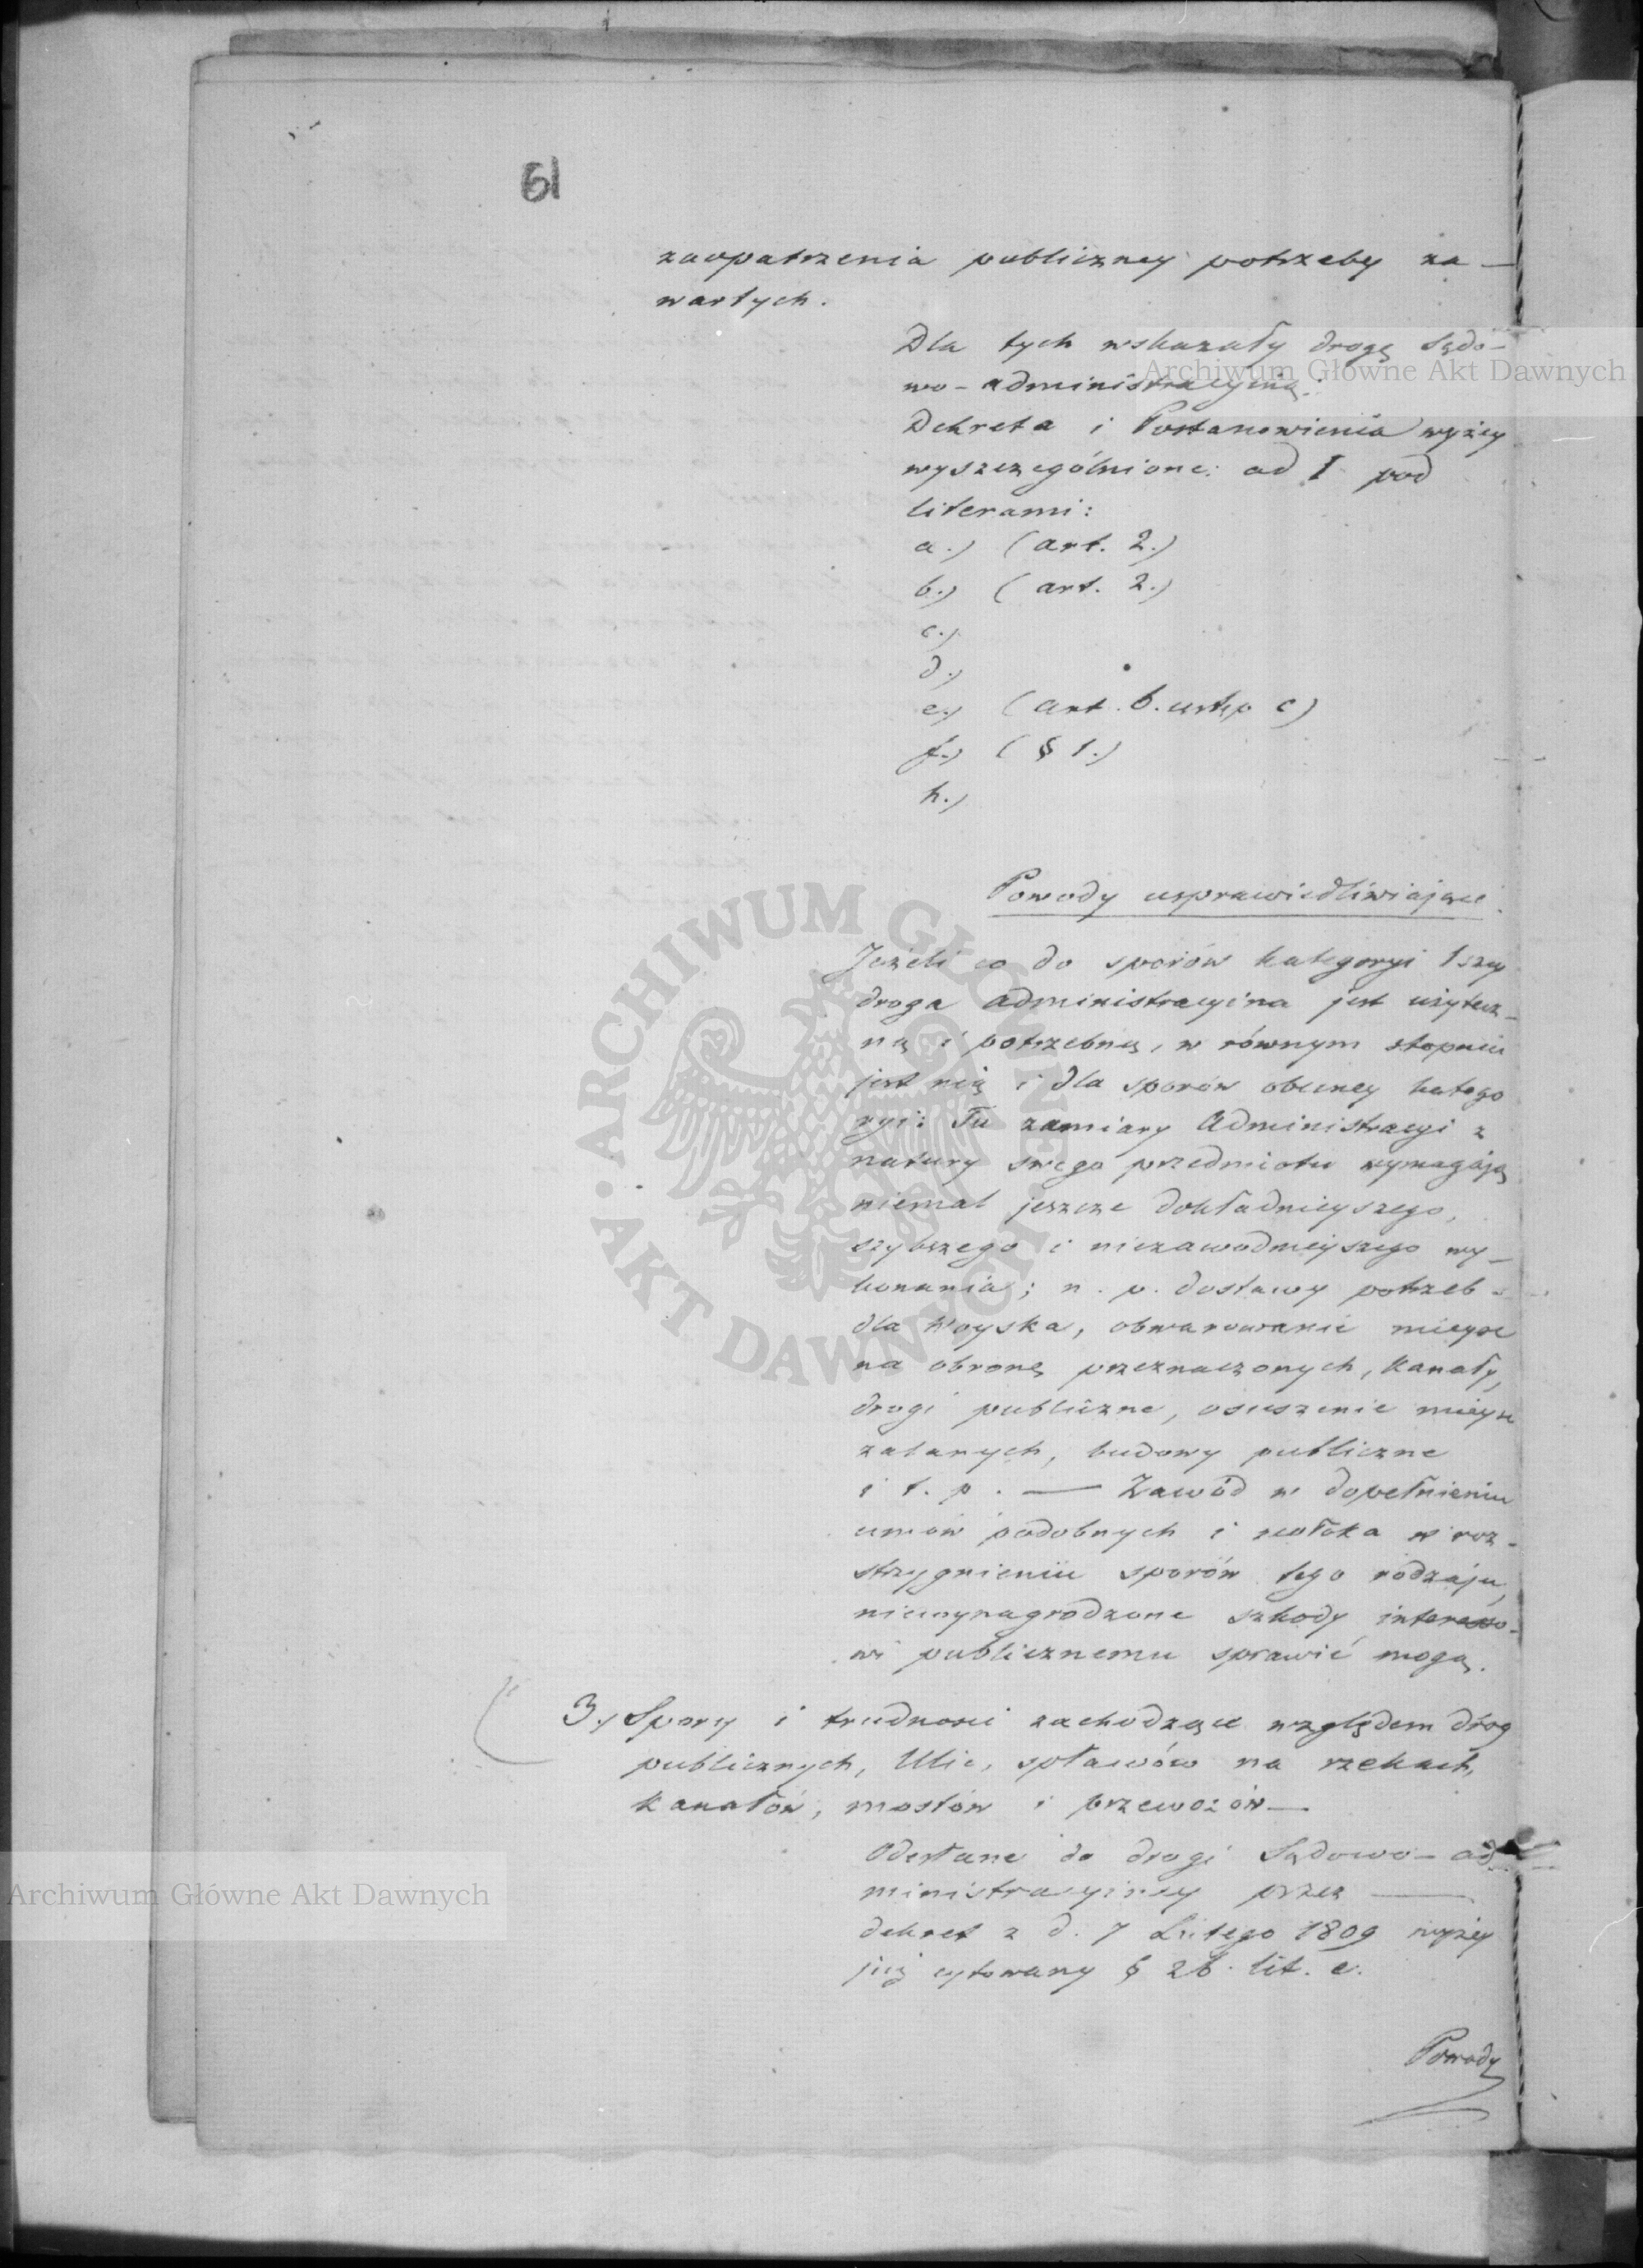 61
zaopatrzenia publiczney potrzeby za-
wartych.
Dla tych wskazały drogę Sądo-
wo-administracyiną:
Dekreta i Postanowienia wyżey
wyszczególnione: ad I pod
literami:
a.) (art. 2.)
b.) (art. 2.)
c.)
d.)
e.) (art. 6. ustęp c)
f.) (§ 1.)
h.)
Powody usprawiedliwiające.
Jeżeli co do sporów kategoryi 1szey
droga administracyina jest użytecz-
ną i potrzebną, w równym stopniu
jest nią i dla sporów obecney katego
ryi: Tu zamiary Administracyi z
natury swego przedmiotu wymagają
niemal jeszcze dokładnieyszego,
szybszego i niezawodnieyszego wy-
konania; n. p. dostawy potrzeb
dla Woyska, obwarowanie mieysc
na obronę przeznaczonych, Kanały,
drogi publiczne, osuszenie mieysc
zalanych, budowy publiczne
i t. p. — Zawód w dopełnieniu
umów podobnych i zwłoka w roz-
strzygnieniu sporów tego rodzaju,
niewynagrodzone szkody intereso-
wi publicznemu sprawić mogą.
3.) Spory i trudności zachodzące względem dróg
publicznych, Ulic, spławów na rzekach,
kanałów, mostów i przewozów —
Odesłane do drogi Sądowo-ad
ministracyiney przez —
dekret z d. 7 Lutego 1809 wyżey
już cytowany § 26. lit. e.
Powody
Archiwum Główne Akt Dawnych
Archiwum Główne Akt Dawnych
ARCHIWUM GŁÓWNE AKT DAWNYCH